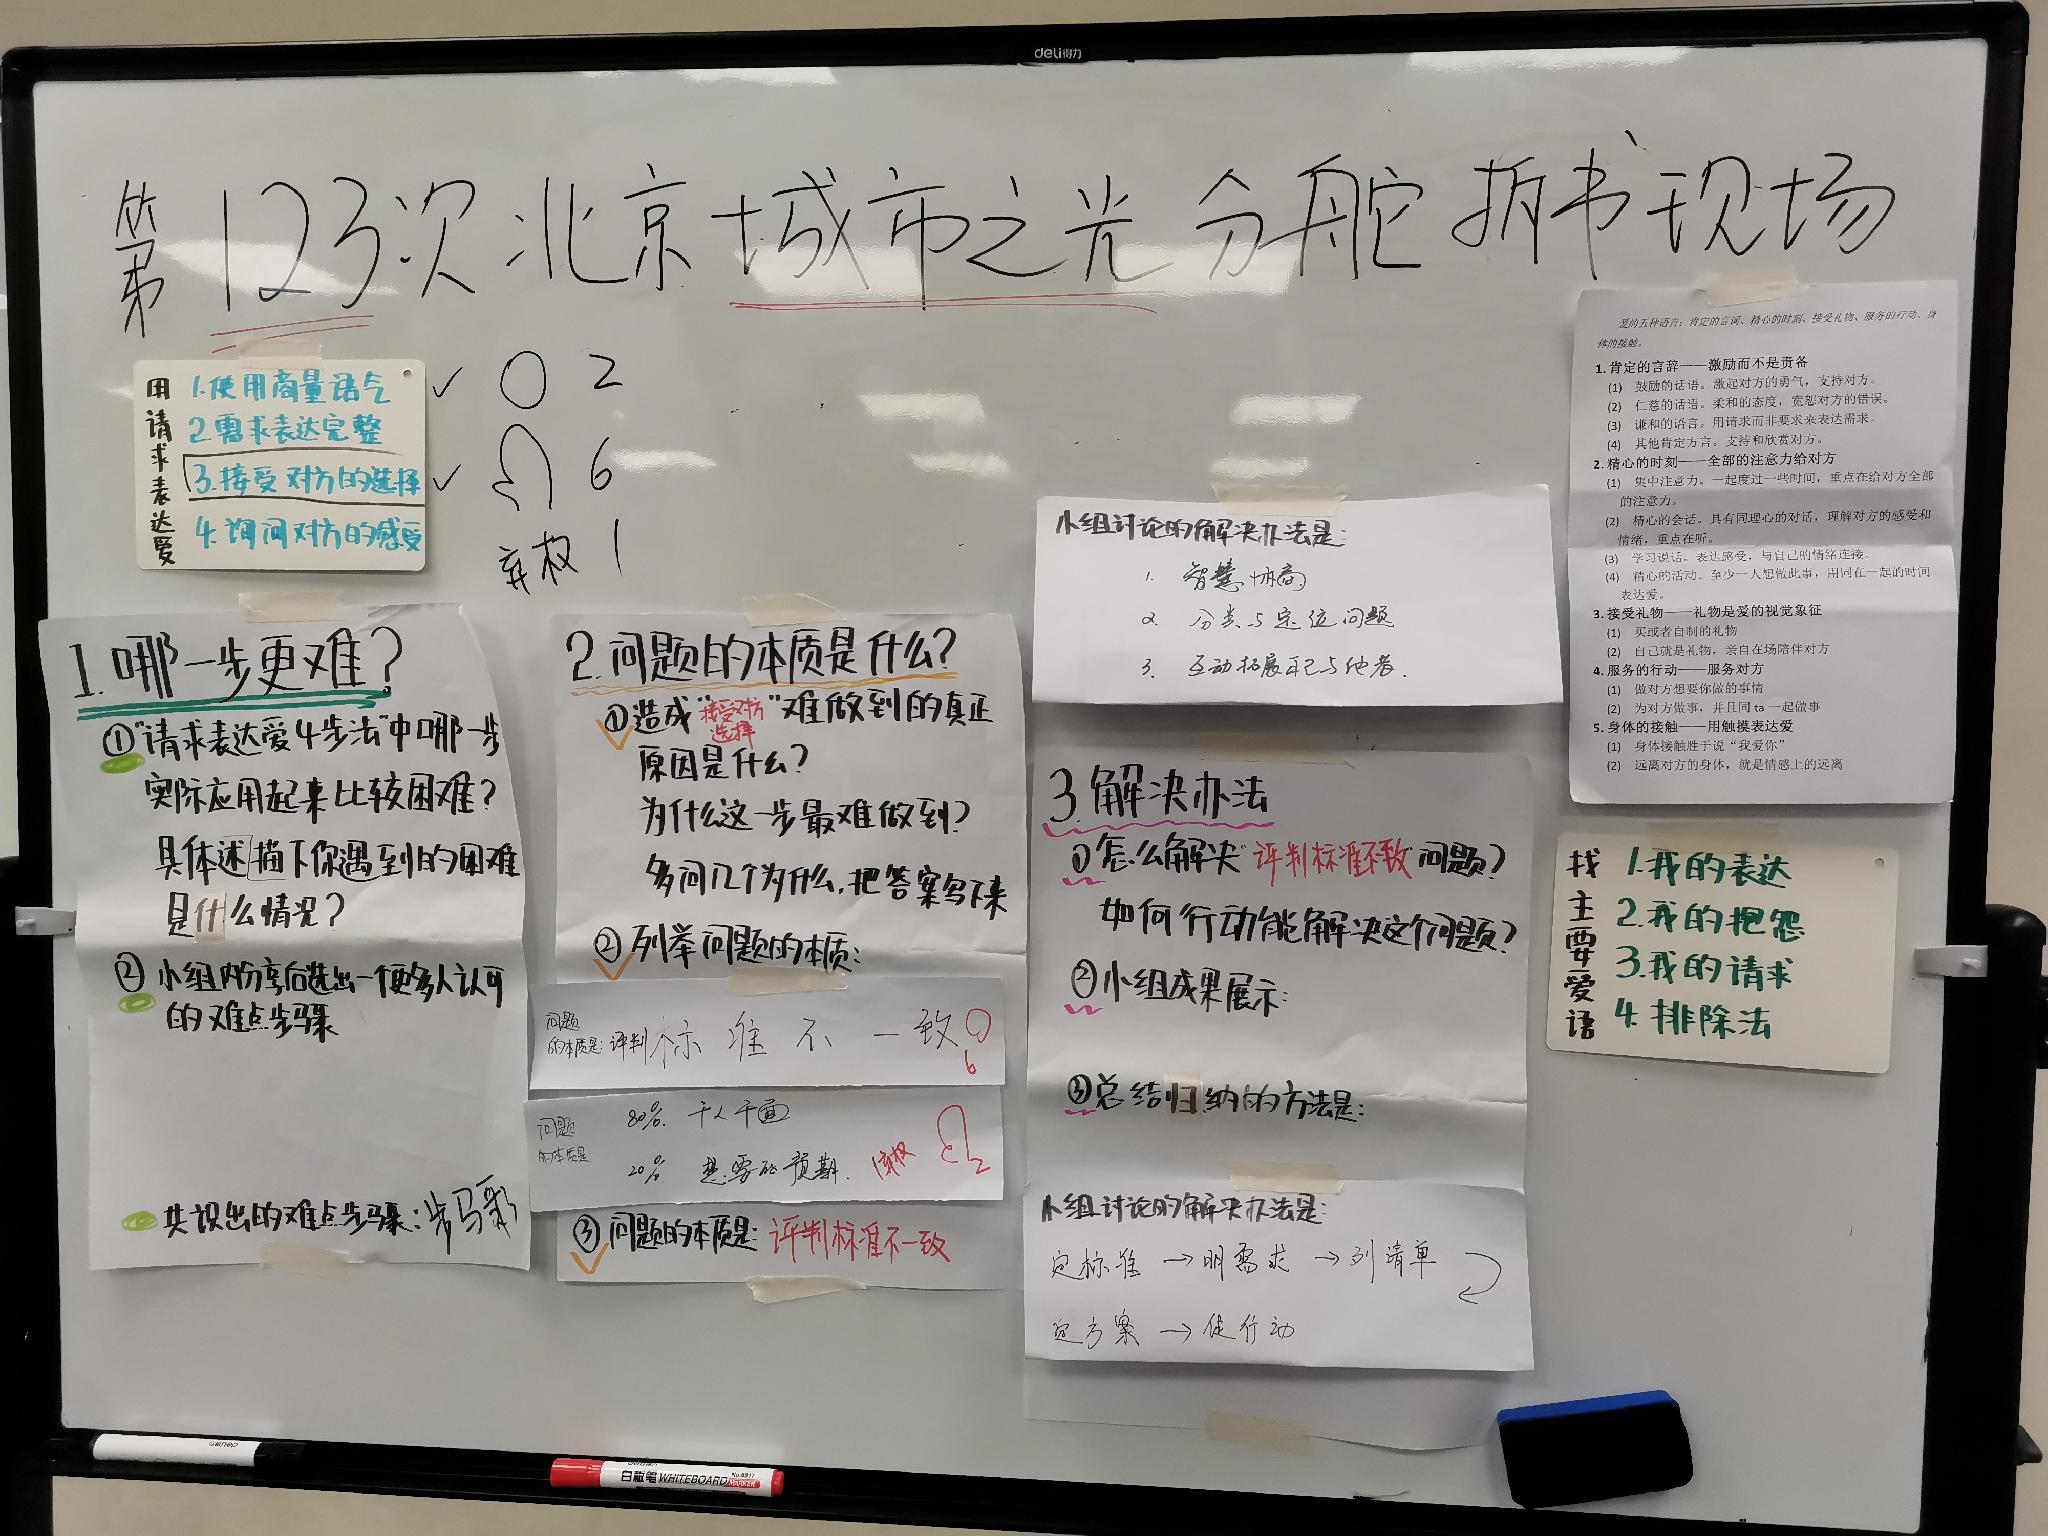 deli得力
第123次北京城市之光分舵拆书现场
用请求表达爱
1.使用商量语气
2.需求表达完整
3.接受对方的选择
4.询问对方的感受
✓ 2
✓ 6
弃权 1
1.哪一步更难?
①"请求表达爱4步法"中哪一步
实际应用起来比较困难?
具体述描下你遇到的困难
是什么情况?
② 小组内分享后选出一个更多人认可
的难点步骤
共识出的难点步骤:步骤
2.问题的本质是什么?
①造成"接受对方选择"难做到的真正
原因是什么?
为什么这一步最难做到?
多问几个为什么,把答案写下来
②列举问题的本质:
问题的本质是:评判标准不一致
6
问题的本质是
80% 千人千面
20% 想要的预期
1弃权
2
③问题的本质是:评判标准不一致
小组讨论的解决办法是:
1. 智慧协商
2. 分类与定位问题
3. 互动拓展自己与他者.
3.解决办法
①怎么解决"评判标准不一致"问题?
如何行动能解决这个问题?
②小组成果展示:
③总结归纳的方法是:
小组讨论的解决办法是:
定标准→明需求→列清单
定方案→促行动
爱的五种语言:肯定的言词、精心的时刻、接受礼物、服务的行动、身
体的接触。
1. 肯定的言辞——激励而不是责备
(1) 鼓励的话语。激起对方的勇气,支持对方。
(2) 仁慈的话语。柔和的态度,宽恕对方的错误。
(3) 谦和的语言。用请求而非要求来表达需求。
(4) 其他肯定方言。支持和欣赏对方。
2. 精心的时刻——全部的注意力给对方
(1) 集中注意力。一起度过一些时间,重点在给对方全部
的注意力。
(2) 精心的会话。具有同理心的对话,理解对方的感受和
情绪,重点在听。
(3) 学习说话。表达感受,与自己的情绪连接。
(4) 精心的活动。至少一人想做此事,用同在一起的时间
表达爱。
3. 接受礼物——礼物是爱的视觉象征
(1) 买或者自制的礼物
(2) 自己就是礼物,亲自在场陪伴对方
4. 服务的行动——服务对方
(1) 做对方想要你做的事情
(2) 为对方做事,并且同 ta 一起做事
5. 身体的接触——用触摸表达爱
(1) 身体接触胜于说"我爱你"
(2) 远离对方的身体,就是情感上的远离
找主要爱语
1.我的表达
2.我的抱怨
3.我的请求
4.排除法
白板笔 WHITEBOARD MARKER